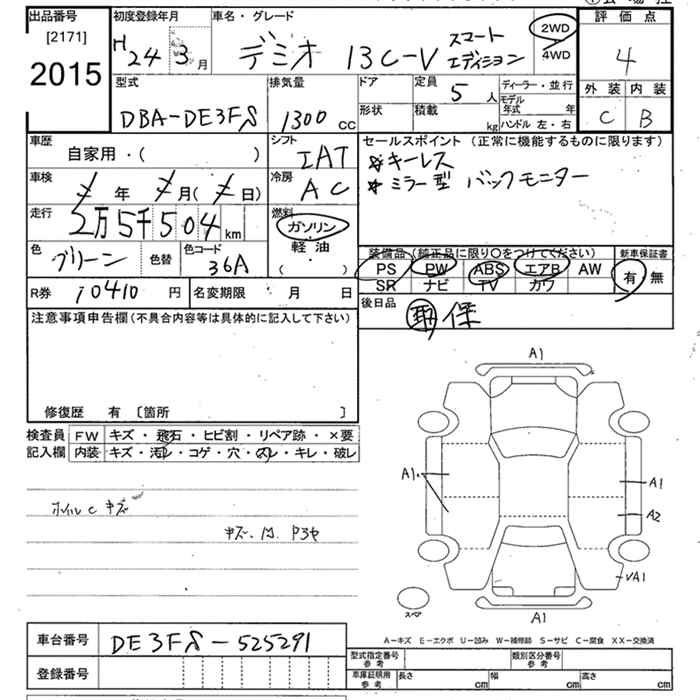 出品番号
[2171]
2015
初度登録年月
H24 3月
車名・グレード
デミオ 13C-V スマート エディション
2WD
4WD
評価点
4
外装 内装
C B
型式
DBA-DE3FS
排気量
1300 cc
ドア
定員
5 人
ディーラー・並行
形状
積載
kg
モデル年式 年
ハンドル 左・右
車歴
自家用・( )
シフト
IAT
セールスポイント(正常に機能するものに限ります)
キーレス
ミラー型 バックモニター
車検
年 月( 日)
冷房
AC
走行
2万5千504 km
燃料
ガソリン
軽油
( )
色
グリーン
色替
色コード
36A
装備品(純正品に限り○をつけてください)
PS PW ABS エアB AW
SR ナビ TV カワ
新車保証書
有 無
R券
10410 円
名変期限 月 日
後日品
取 保
注意事項申告欄(不具合内容等は具体的に記入して下さい)
修復歴 有 〔箇所 〕
検査員 FW キズ・飛石・ヒビ割・リペア跡・×要
記入欄 内装 キズ・汚レ・コゲ・穴・スレ・キレ・破レ
ホイルC キズ
A1
A1
A1
A2
A1
スペア
A1
A-キズ E-エクボ U-凹み W-補修跡 S-サビ C-腐食 XX-交換済
車台番号
DE3FS-525291
登録番号
型式指定番号 参考
類別区分番号 参考
車庫証明用 参考
長さ cm
幅 cm
高さ cm